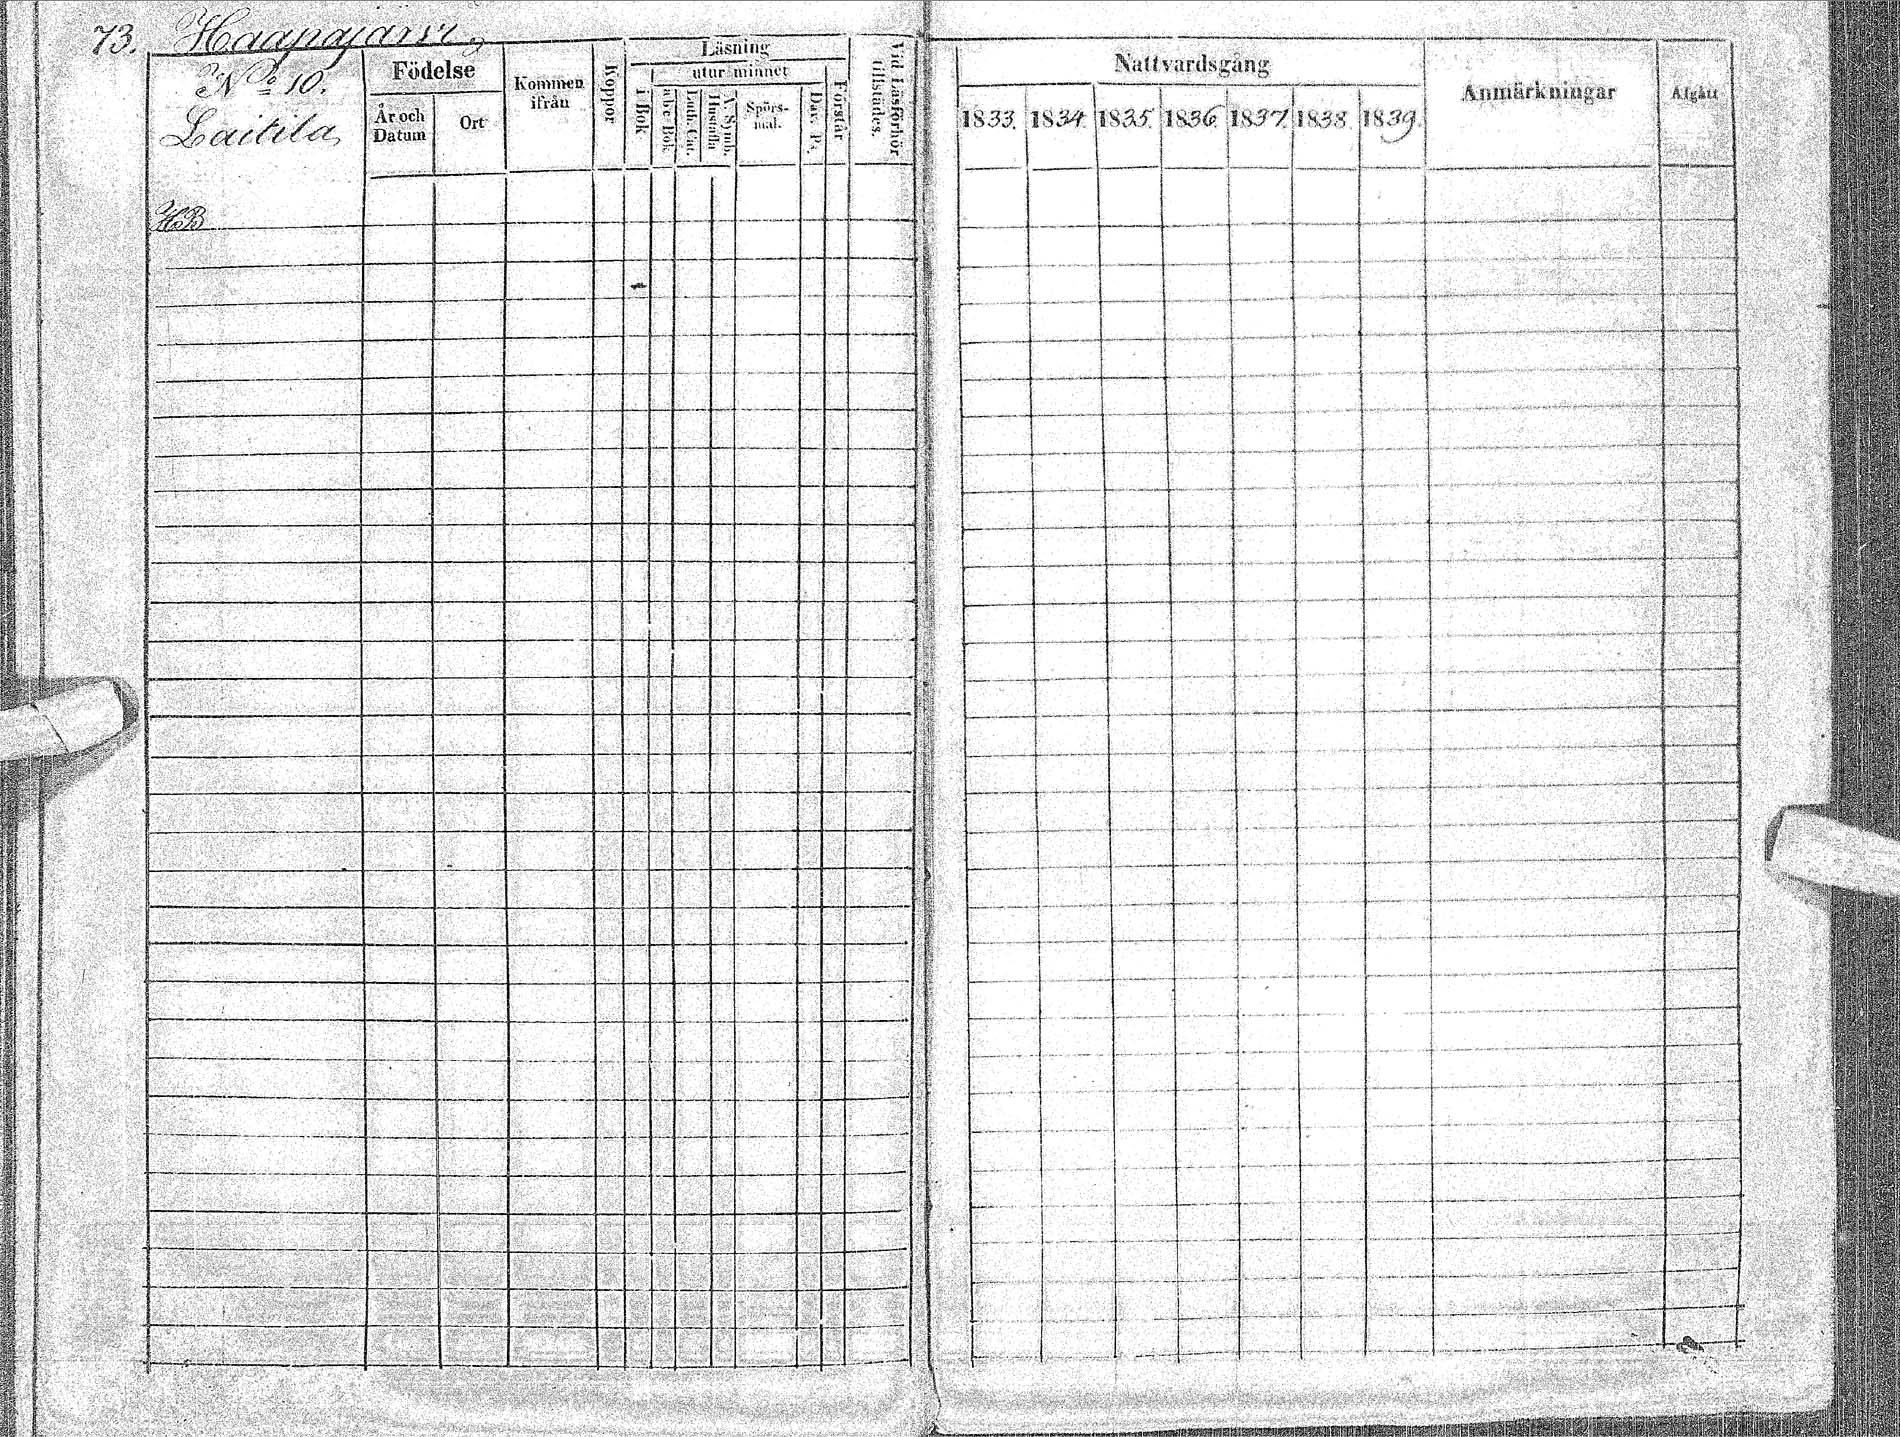 73. Haapajärvi
No 10.
Laitila
HB
Födelse
År och Datum
Ort
Kommen ifrån
Koppor
Läsning
i Bok
utur minnet
abc Bok.
Luth. Cat.
Hustafla
A. Symb.
Spörs-
mal.
Dav. Ps.
Förstår
Vid Läsförhör
tillstädes.
Nattvardsgång
1833. 1834. 1835. 1836. 1837. 1838. 1839.
Anmärkningar
Afgått